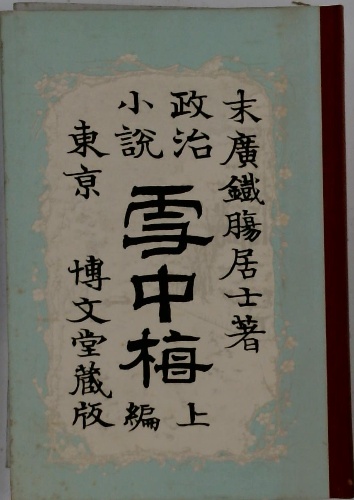 末廣鐵膓居士著
政治
小說
雪中梅
上
編
東京 博文堂藏版